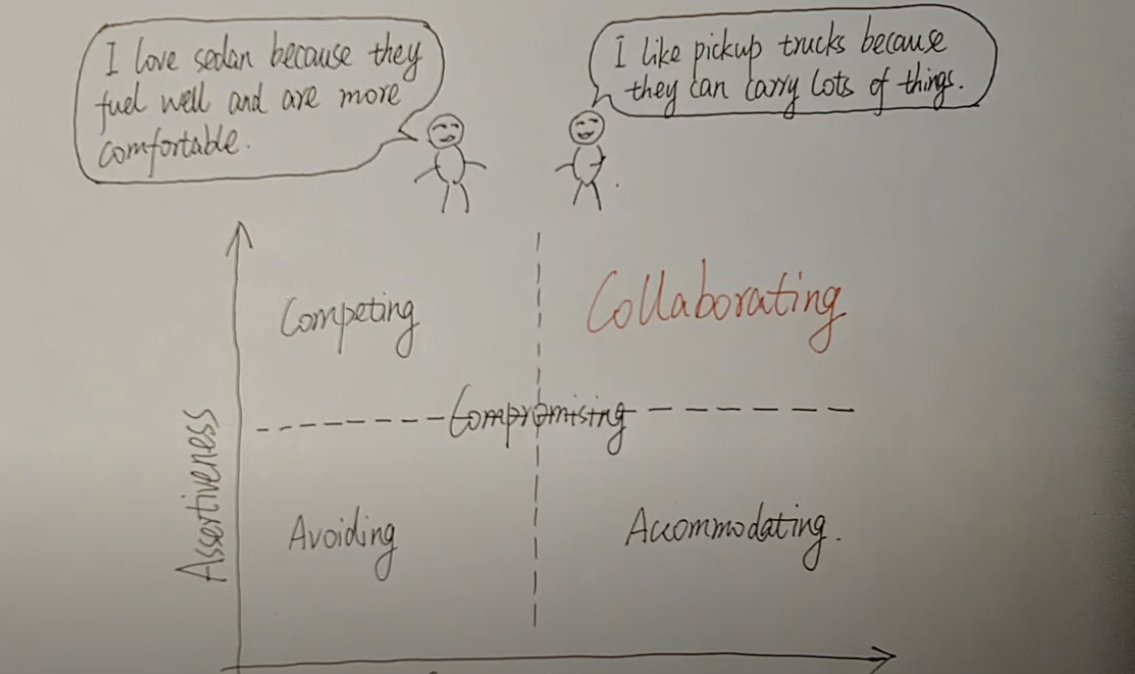 I love sedan because they
fuel well and are more
comfortable.
I like pickup trucks because
they can carry lots of things.
Competing
Collaborating
Compromising
Assertiveness
Avoiding
Accommodating.